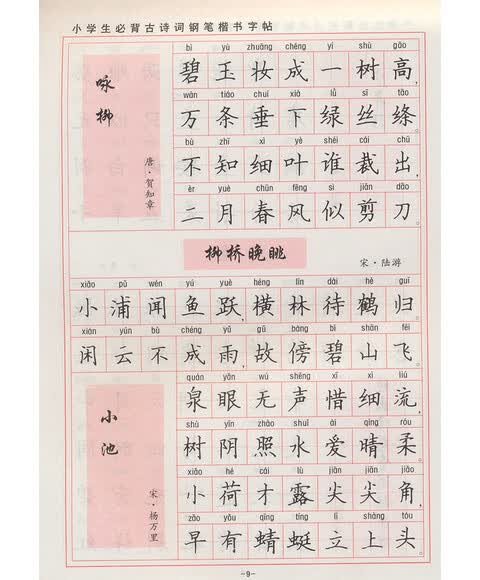 小学生必背古诗词钢笔楷书字帖
咏柳
唐·贺知章
bì yù zhuāng chéng yí shù gāo
碧玉妆成一树高，
wàn tiáo chuí xià lǜ sī tāo
万条垂下绿丝绦。
bù zhī xì yè shéi cái chū
不知细叶谁裁出，
èr yuè chūn fēng sì jiǎn dāo
二月春风似剪刀。
柳桥晚眺
宋·陆游
xiǎo pǔ wén yú yuè héng lín dài hè guī
小浦闻鱼跃，横林待鹤归。
xián yún bù chéng yǔ gù bàng bì shān fēi
闲云不成雨，故傍碧山飞。
小池
宋·杨万里
quán yǎn wú shēng xī xì liú
泉眼无声惜细流，
shù yīn zhào shuǐ ài qíng róu
树阴照水爱晴柔。
xiǎo hé cái lù jiān jiān jiǎo
小荷才露尖尖角，
zǎo yǒu qīng tíng lì shàng tóu
早有蜻蜓立上头。
-9-